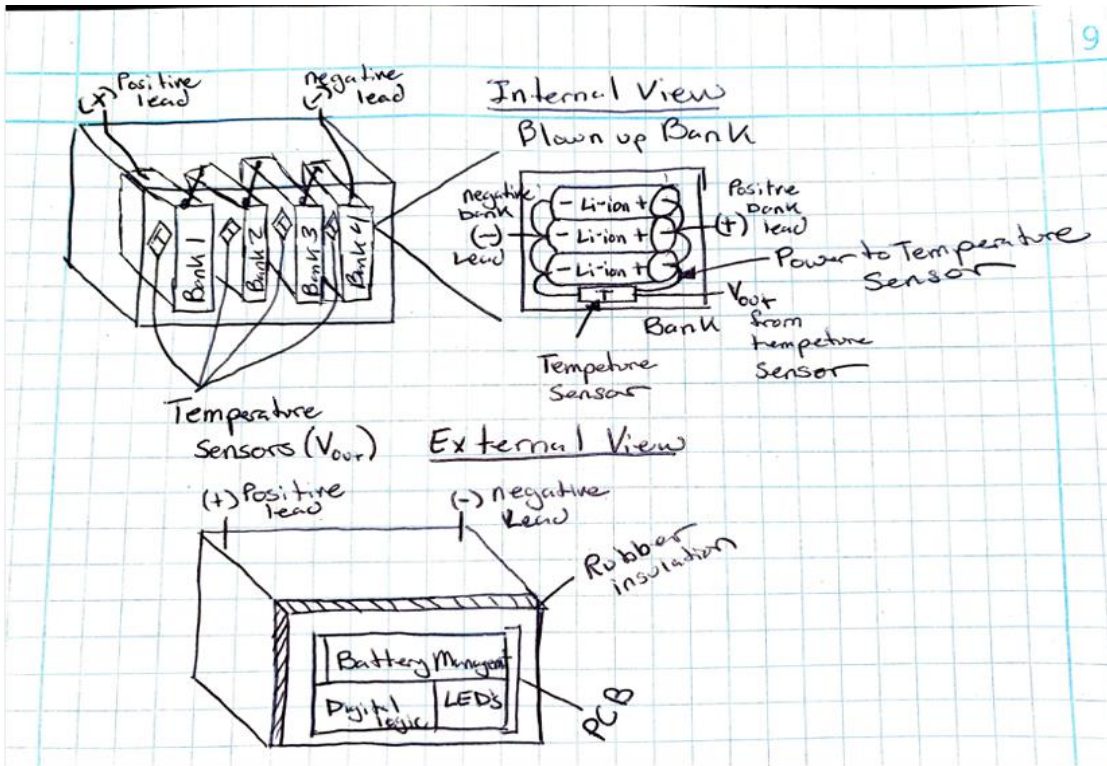 9
Positive
lead
(+)
negative
lead
(-)
Internal View
Blown up Bank
Bank 1
Bank 2
Bank 3
Bank 4
negative
bank
(-)
Lead
- Li-ion +
- Li-ion +
- Li-ion +
Positve
bank
(+) lead
Power to Temperature
Sensor
T
Vout
from
tempeture
Sensor
Bank
Tempeture
Sensor
Temperature
Sensors (Vout)
External View
(+) Positive
lead
(-) negative
Lead
Rubber
insulation
Battery Managemt
Digital
logic
LED's
PCB